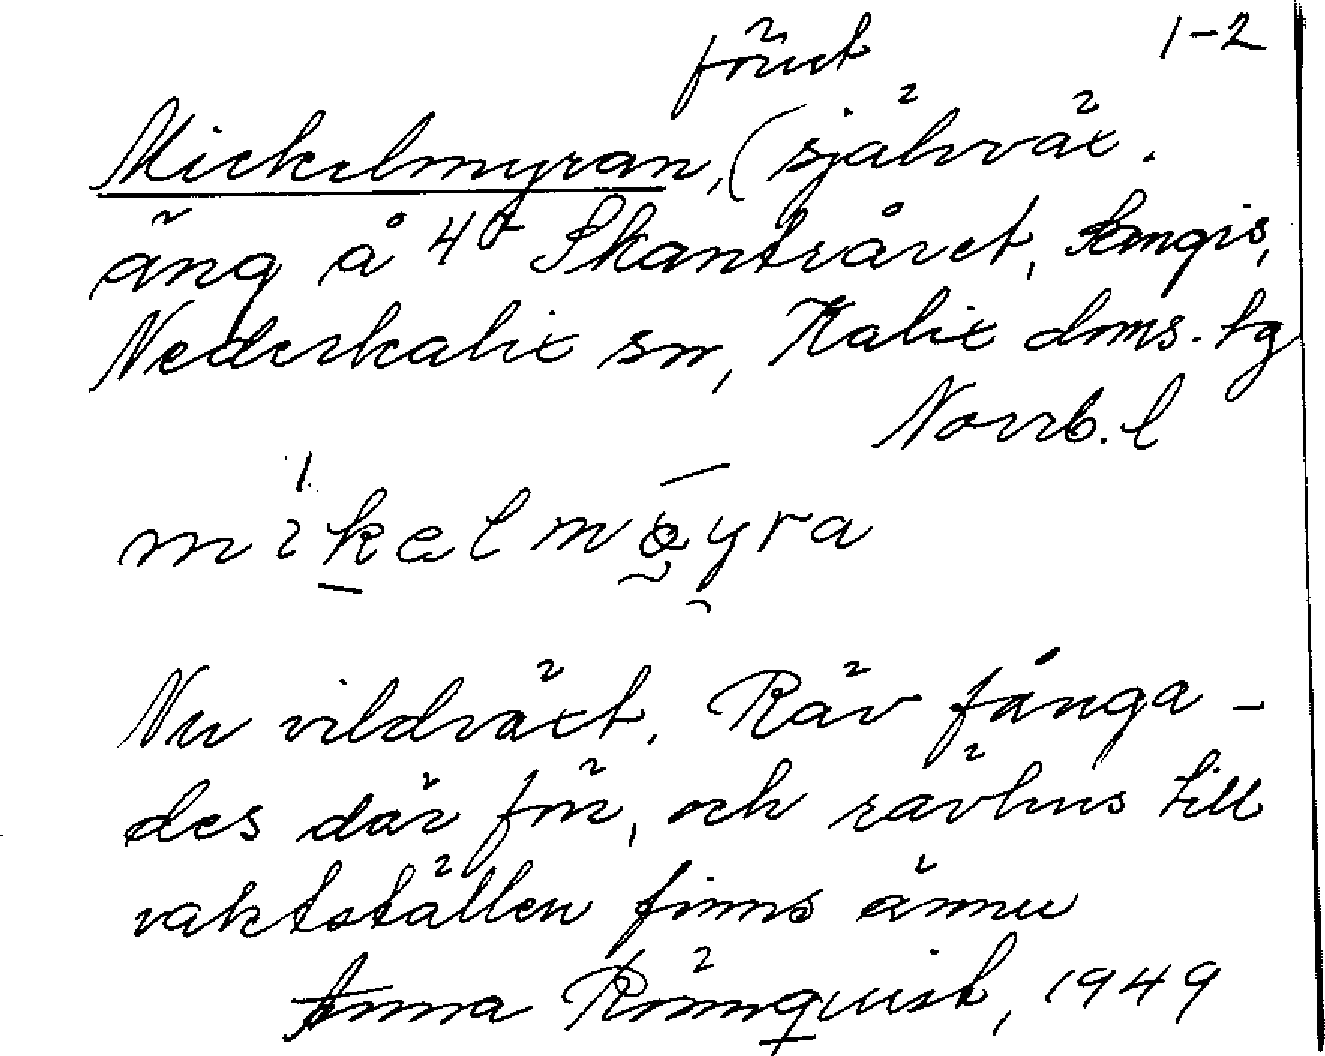 förut 1-2
Mickelmyran, (självväx.
äng å 40 Skantråret, Sangis,
Nederkalix sn, Kalix doms. tg
Norrb. l
mikelmyra
Nu vildväxt. Räv fånga-
des där förr, och rävhus till
vaktställen finns ännu
Anna Rönnquist, 1949